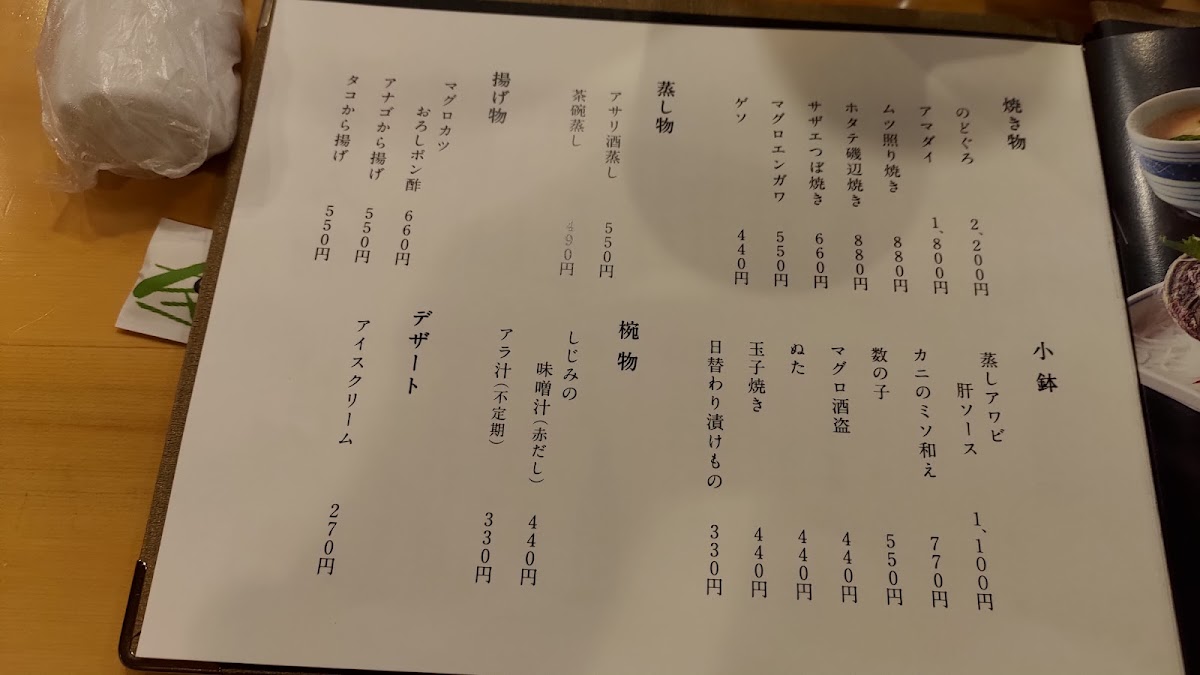 焼き物
のどぐろ 2、200円
アマダイ 1、800円
ムツ照り焼き 880円
ホタテ磯辺焼き 880円
サザエつぼ焼き 660円
マグロエンガワ 550円
ゲソ 440円
蒸し物
アサリ酒蒸し 550円
茶碗蒸し 490円
揚げ物
マグロカツ
おろしポン酢 660円
アナゴから揚げ 550円
タコから揚げ 550円
小鉢
蒸しアワビ
肝ソース 1、100円
カニのミソ和え 770円
数の子 550円
マグロ酒盗 440円
ぬた 440円
玉子焼き 440円
日替わり漬けもの 330円
椀物
しじみの
味噌汁(赤だし) 440円
アラ汁(不定期) 330円
デザート
アイスクリーム 270円